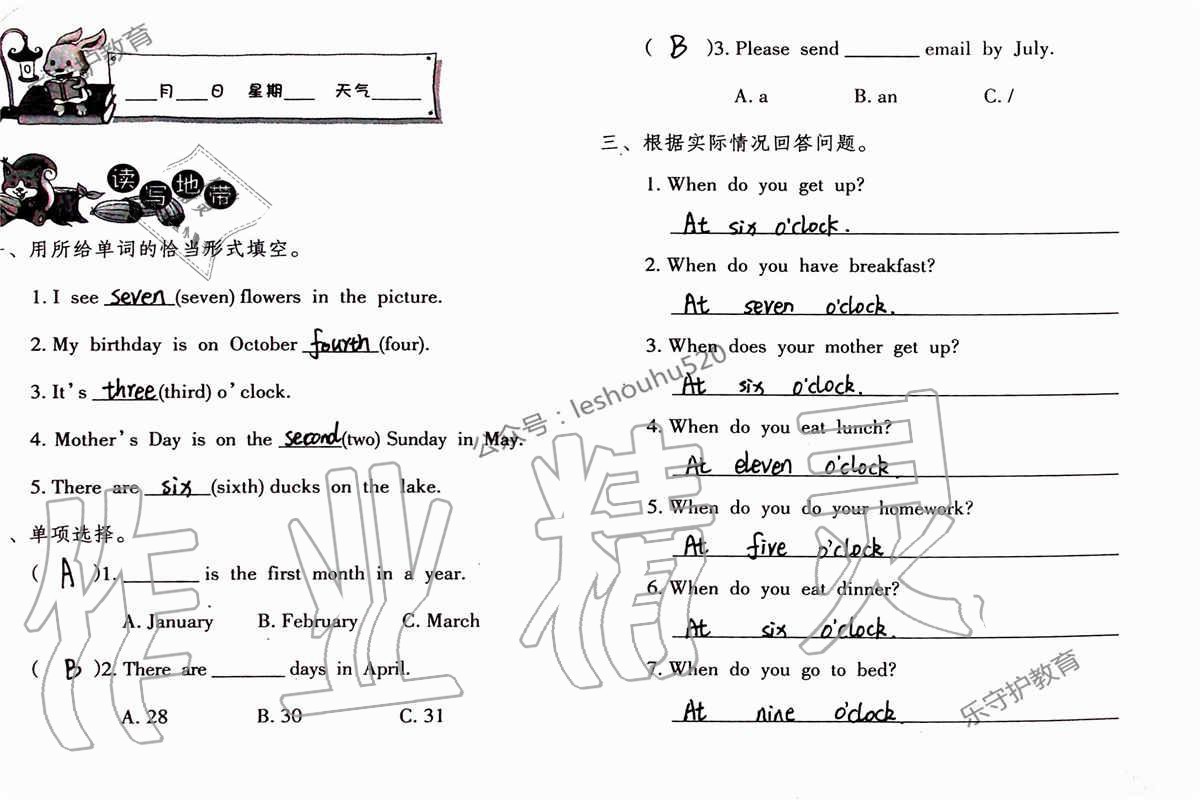 ___月___日 星期___ 天气_____
读写地带
一、用所给单词的恰当形式填空。
1. I see seven (seven) flowers in the picture.
2. My birthday is on October fourth (four).
3. It's three (third) o'clock.
4. Mother's Day is on the second (two) Sunday in May.
5. There are six (sixth) ducks on the lake.
、单项选择。
( A )1. ________ is the first month in a year.
A. January B. February C. March
( B )2. There are ________ days in April.
A. 28 B. 30 C. 31
( B )3. Please send ________ email by July.
A. a B. an C. /
三、根据实际情况回答问题。
1. When do you get up?
At six o'clock.
2. When do you have breakfast?
At seven o'clock.
3. When does your mother get up?
At six o'clock.
4. When do you eat lunch?
At eleven o'clock.
5. When do you do your homework?
At five o'clock
6. When do you eat dinner?
At six o'clock.
7. When do you go to bed?
At nine o'clock.
乐守护教育
公众号：leshouhu520
作业精灵
乐守护教育